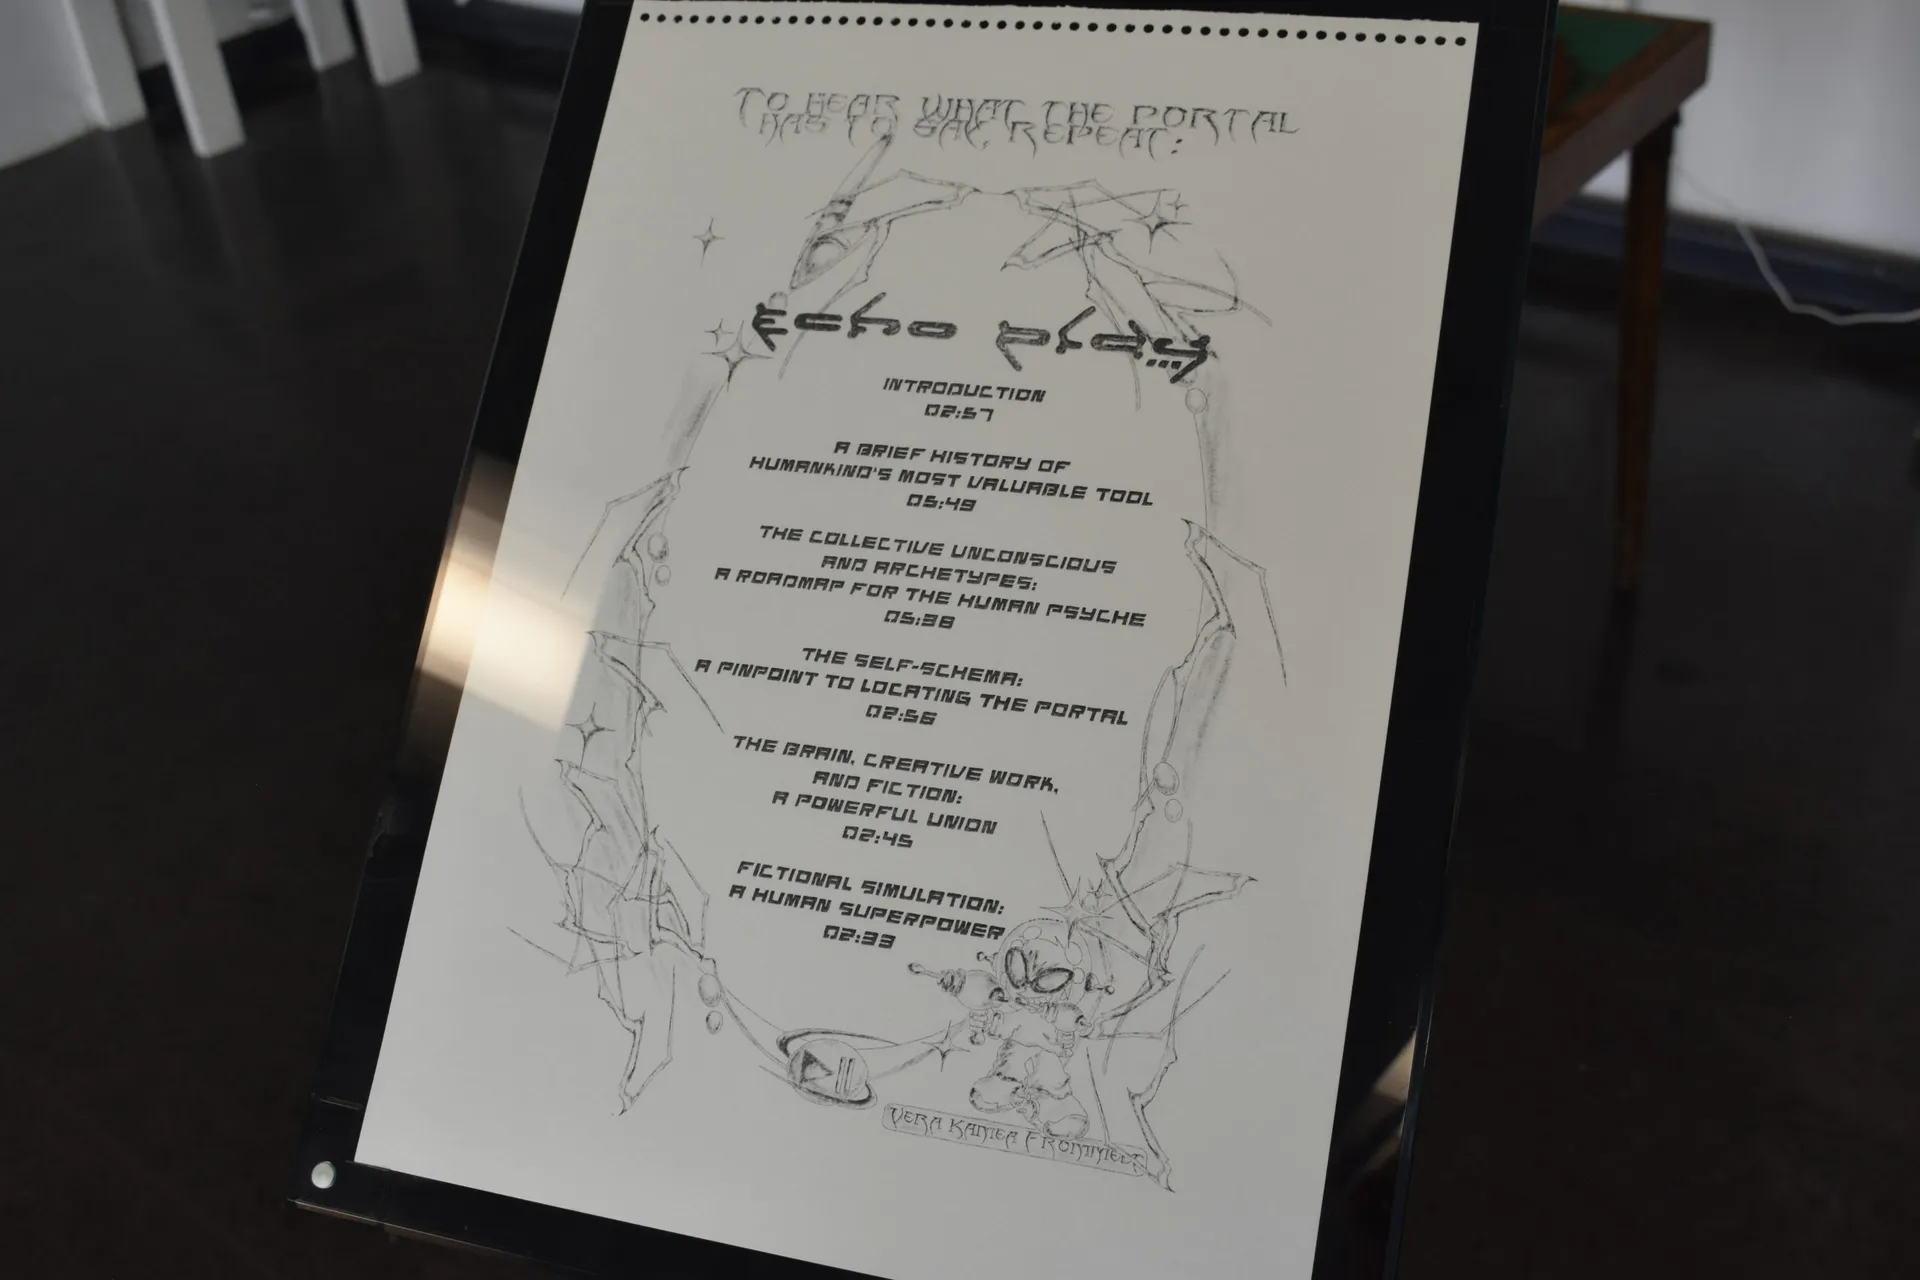 TO HEAR WHAT THE PORTAL
HAS TO SAY, REPEAT:
Echo play...
INTRODUCTION
02:57
A BRIEF HISTORY OF
HUMANKIND'S MOST VALUABLE TOOL
05:49
THE COLLECTIVE UNCONSCIOUS
AND ARCHETYPES:
A ROADMAP FOR THE HUMAN PSYCHE
05:38
THE SELF-SCHEMA:
A PINPOINT TO LOCATING THE PORTAL
02:56
THE BRAIN, CREATIVE WORK,
AND FICTION:
A POWERFUL UNION
02:45
FICTIONAL SIMULATION:
A HUMAN SUPERPOWER
02:33
VERA KAMEA FROMMELT